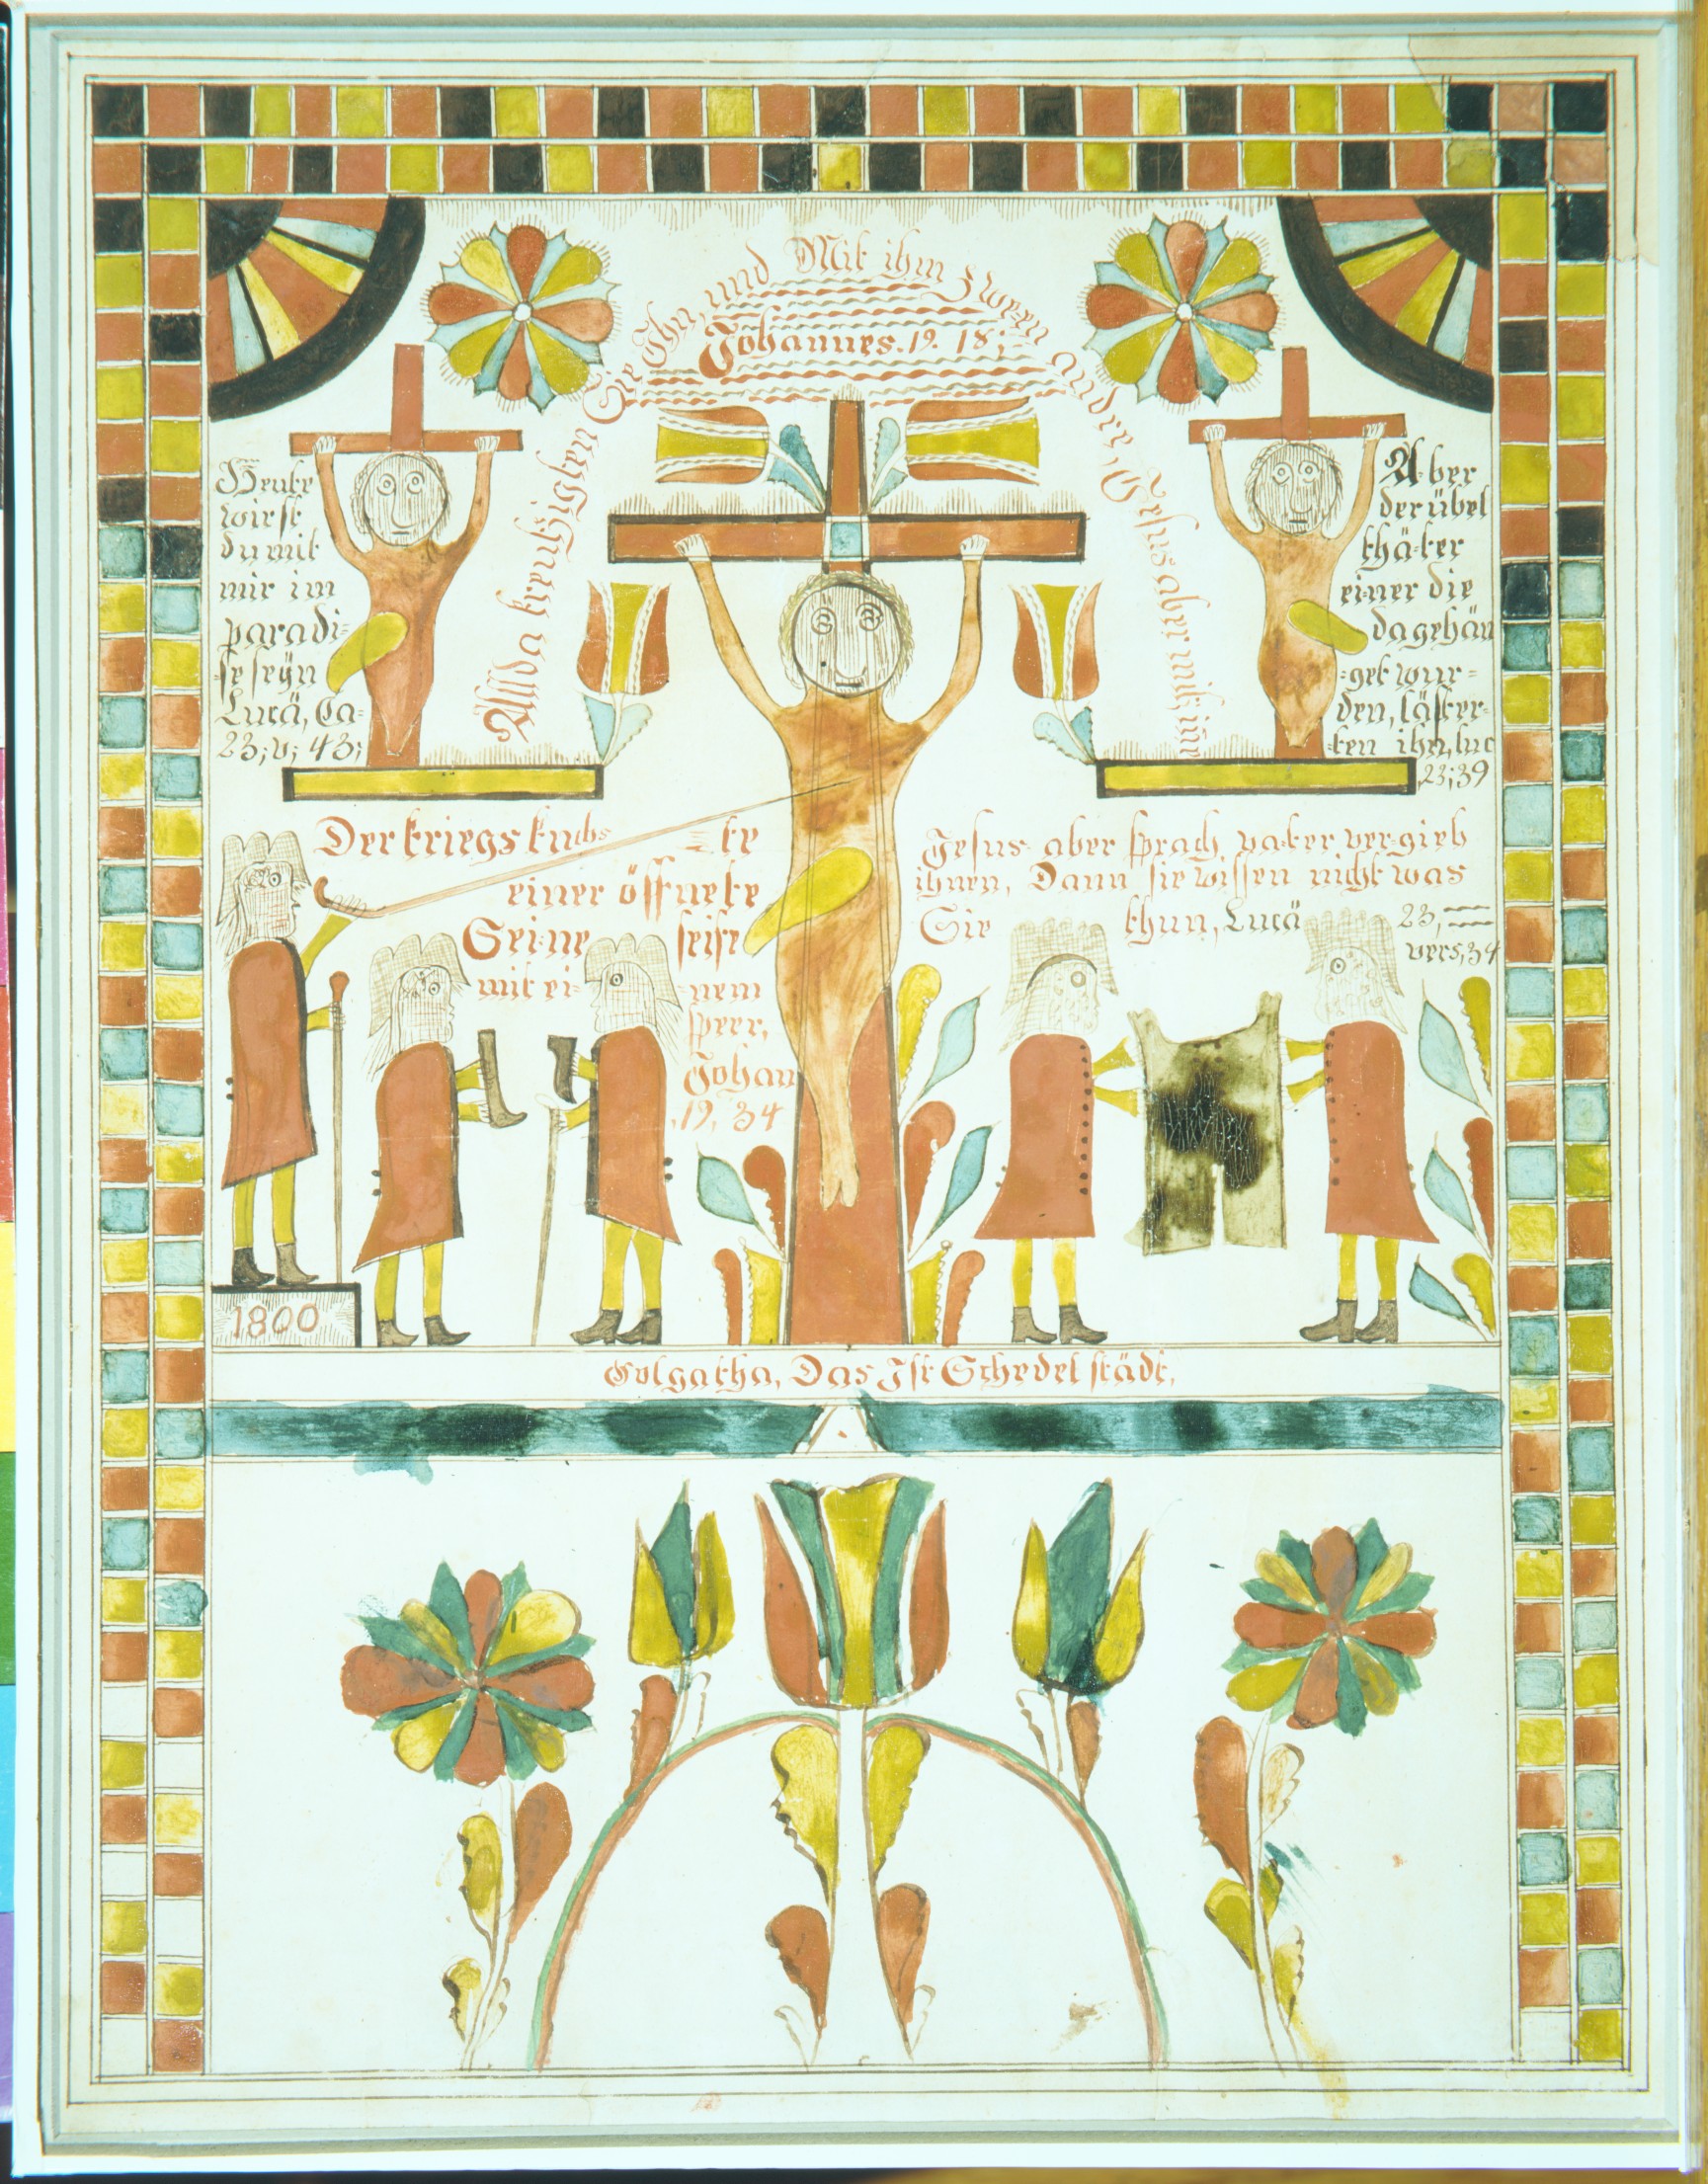 Allda kreutzigten Sie Ihn, und Mit ihm Zween andere, Jesus aber mitt ine
Johannes. 19. 18;
Heute
wirst
du mit
mir im
paradi=
=se seÿn
Lucä, Ca=
23; v; 43;
Aber
der übel
thä-ter
einer die
da gehän
=get wur=
den, läster=
=ten ihn, luc
23; 39
Der kriegs knchs = te
einer öffnete
Seine seite
mit ei= =nem
speer,
Johan
19, 34
Jesus aber sprach vater ver=gieb
ihnen, Dann sie wissen nicht was
Sie thun, Lucä 23,
vers, 34
1800
Golgatha, Das Ist Schedel städt,